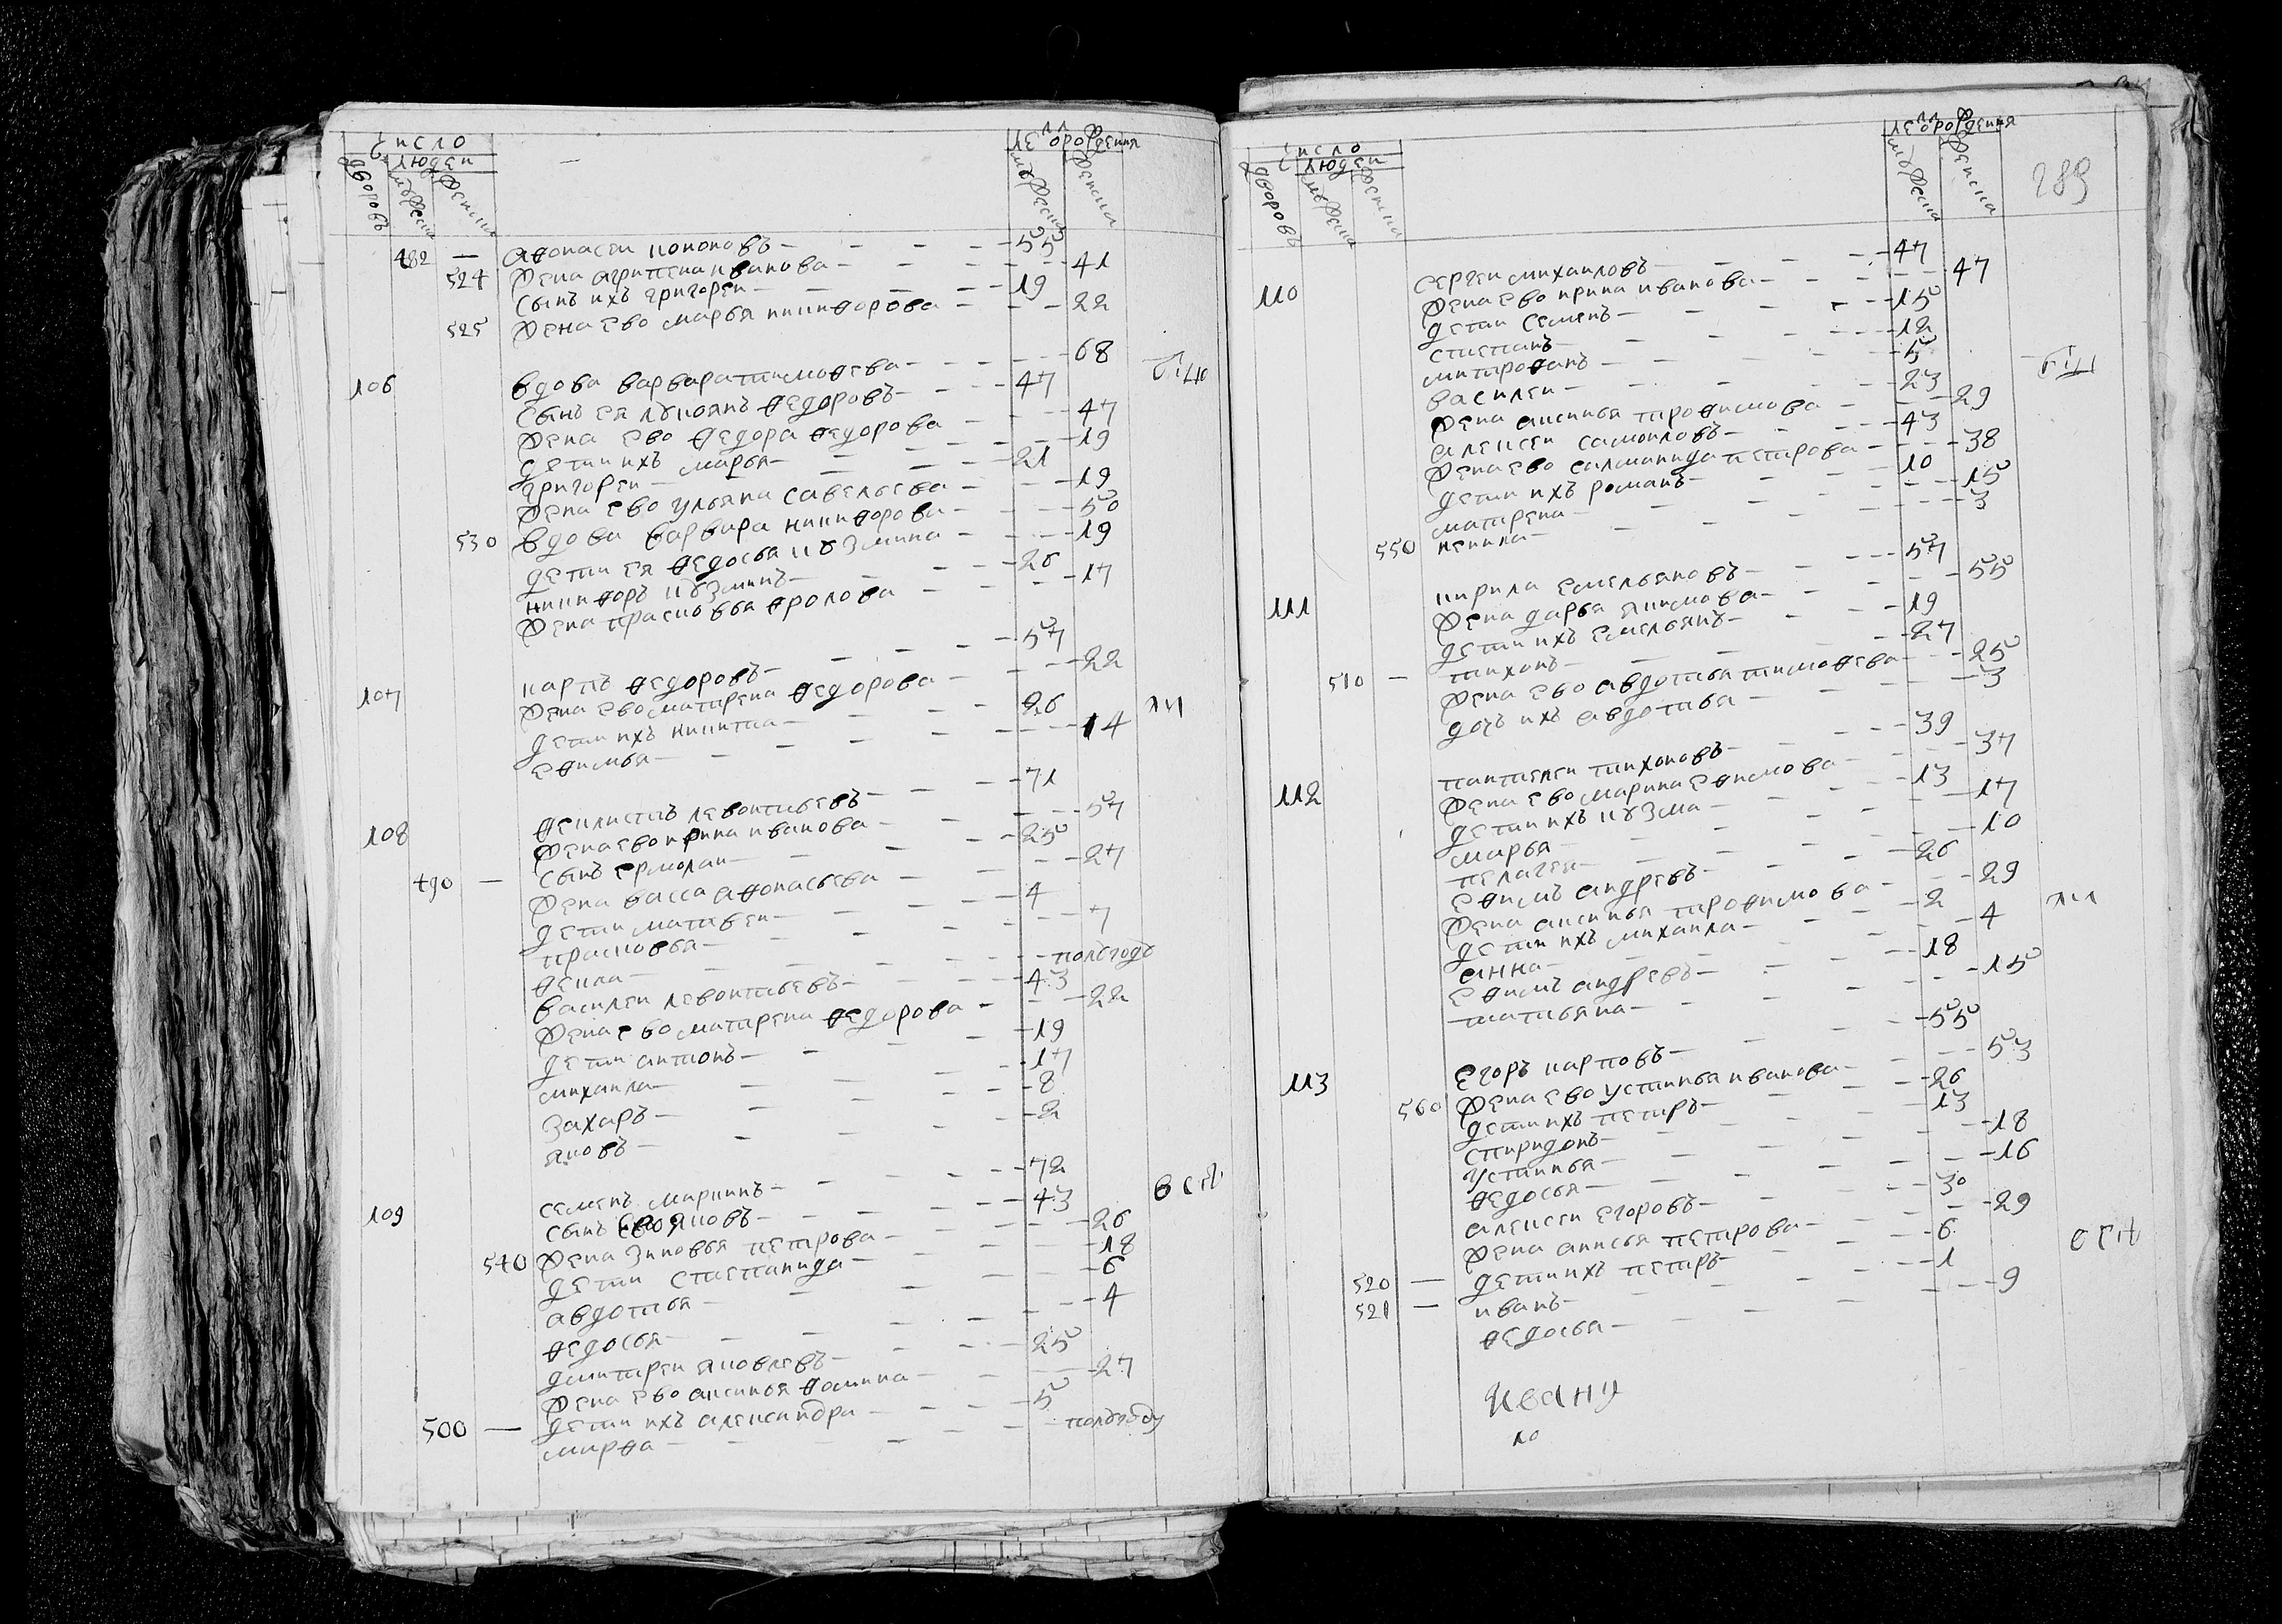 число
людеи
дворовъ мужеска женска
лета от рождения
мужеска женска
482 — афонасеи кононовъ — 55
524 жена агрипена иванова — 41
сынъ ихъ григореи — 19
525 жена ево марья никифорова — 22
106 вдова варвара тимофеева — 68
сынъ ея лукоянъ федоровъ — 47
жена ево федора федорова — 47
дети ихъ марья — 19
григореи — 21
жена ево ульяна савельева — 19
530 вдова варвара никифорова — 50
дети ея федосья кузмина — 19
никифоръ кузминъ — 26
жена прасковья фролова — 17
107 карпъ федоровъ — 57
жена ево матрена федорова — 22
дети ихъ никита — 26
ефимья — 14
108 феклистъ левонтьевъ — 71
жена ево ирина иванова — 57
сынъ ермолаи — 25
490 — жена васса афонасьева — 27
дети матвеи — 4
прасковья — 7
фекла — полгоду
василеи левонтьевъ — 43
жена ево матрена федорова — 22
дети антонъ — 19
михаила — 17
захаръ — 8
яковъ — 2
109 семенъ маркинъ — 72
сынъ ево яковъ — 43
540 жена зиновья петрова — 26
дети степанида — 18
авдотья — 6
федосья — 4
дмитреи яковлевъ — 25
жена ево аксинья фомина — 27
500 — дети ихъ александра — 5
марфа — полгоду
число
людеи
дворовъ мужеска женска
лета от рождения
мужеска женска
289
110 сергеи михаиловъ — 47
жена ево ирина иванова — 47
дети семенъ — 15
степанъ — 12
митрофанъ — 5
василеи — 23
жена аксинья трофимова — 29
алексеи самоиловъ — 43
жена ево саломанида петрова — 38
дети ихъ романъ — 10
матрена — 15
550 ненила — 3
111 кирила емельяновъ — 57
жена дарья якимова — 55
дети ихъ емельянъ — 19
510 — тихонъ — 27
жена ево авдотья тимофеева — 25
дочь ихъ авдотья — 3
112 пантелеи тихоновъ — 39
жена ево марина ефимова — 37
дети ихъ кузма — 13
марья — 17
пелагея — 10
ефимъ андревъ — 26
жена аксинья трофимова — 29
дети ихъ михаила — 2
анна — 4
ефимъ андревъ — 18
татьяна — 15
113 егоръ карповъ — 55
560 жена ево устинья иванова — 53
дети ихъ петръ — 26
спиридонъ — 13
устинья — 18
федосья — 16
алексеи егоровъ — 30
жена анисья петрова — 29
520 — дети ихъ петръ — 6
521 — иванъ — 1
федосья — 9
ивану